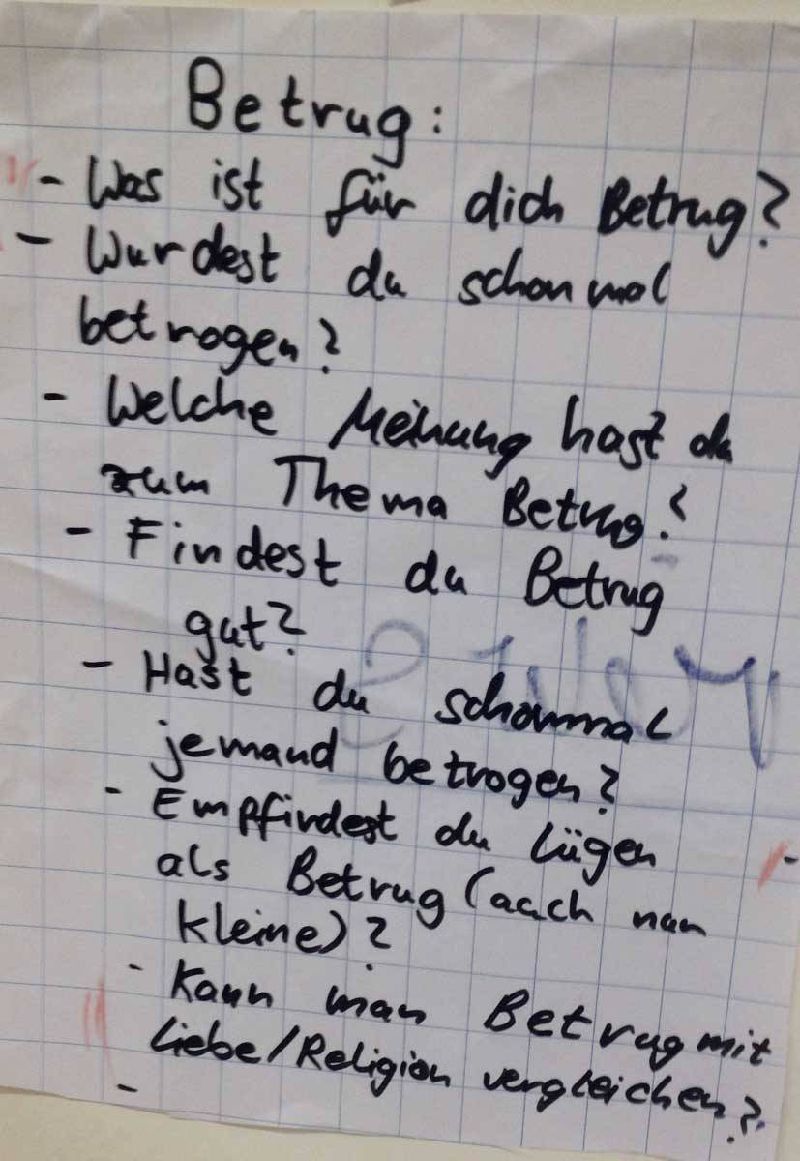 Betrug:
- Was ist für dich Betrug?
- Wurdest du schonmal
betrogen?
- Welche Meinung hast du
zum Thema Betrug?
- Findest du Betrug
gut?
- Hast du schonmal
jemand betrogen?
- Empfindest du Lügen
als Betrug (auch nur
kleine)?
- Kann man Betrug mit
Liebe/Religion vergleichen?
-